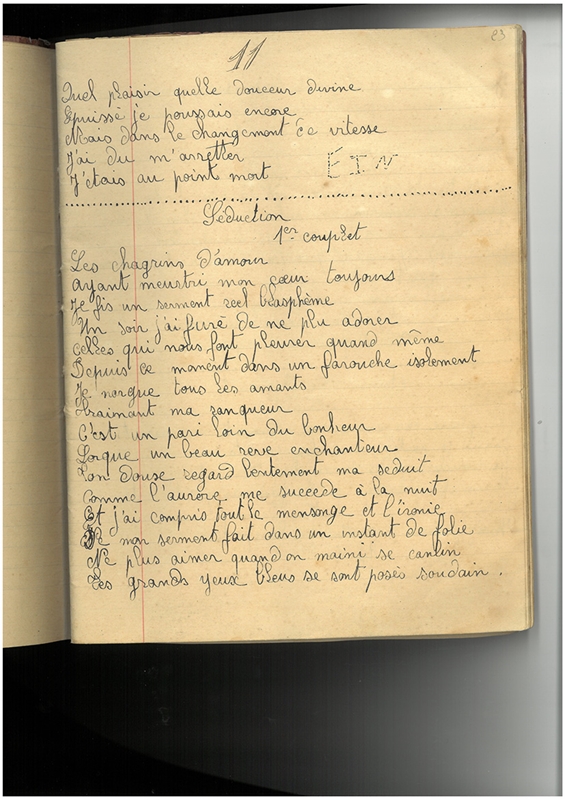 23
11
Quel plaisir quelle douceur divine
Epuissé je poussais encore
Mais dans le changement de vitesse
J'ai du m'arretter
J'étais au point mort FIN
Séduction
1er couplet
Les chagrins d'amour
ayant meustri mon cœur toujours
Je fis un serment reel blasphème
Un soir j'ai juré de ne plu adorer
celles qui nous font pleurer quand même
Depuis ce moment dans un farouche isolement
Je norgue tous les amants
Braimant ma ranqueur
C'est un pari loin du bonheur
Lorque un beau reve enchanteur
Ton douse regard lentement ma seduit
comme l'aurore me succede à la nuit
Et j'ai compris tout le mensonge et l'ironie
De mon serment fait dans un instant de folie
Ne plus aimer quand on
Tes grands yeux bleus se sont posés soudain.